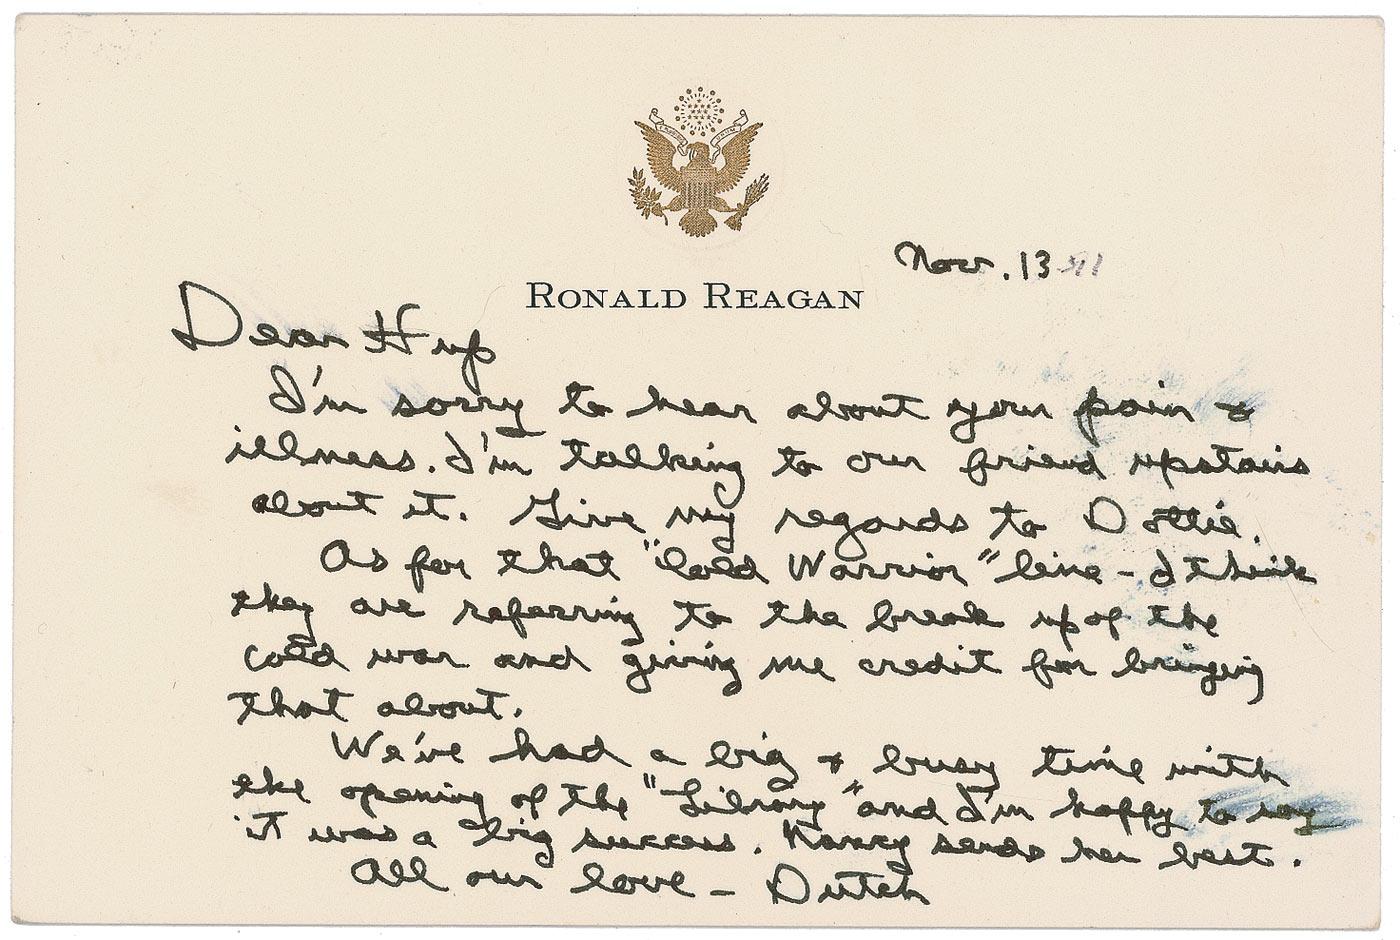 Nov. 13
RONALD REAGAN
Dear Hup
I'm sorry to hear about your pain &
illness. I'm talking to our friend upstairs
about it. Give my regards to Dottie.
As for that "Cold Warrior" line – I think
they are referring to the break up of the
cold war and giving me credit for bringing
that about.
We've had a big & busy time with
the opening of the "Library" and I'm happy to say
it was a big success. Nancy sends her best.
All our love – Dutch